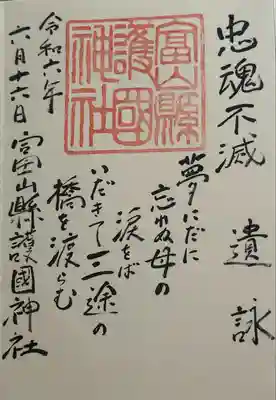 忠魂不滅
遺詠
夢にだに
忘れぬ母の
涙をば
いだきて三途の
橋を渡らむ
富山縣
護國
神社
令和六年
六月十六日 富山県護國神社